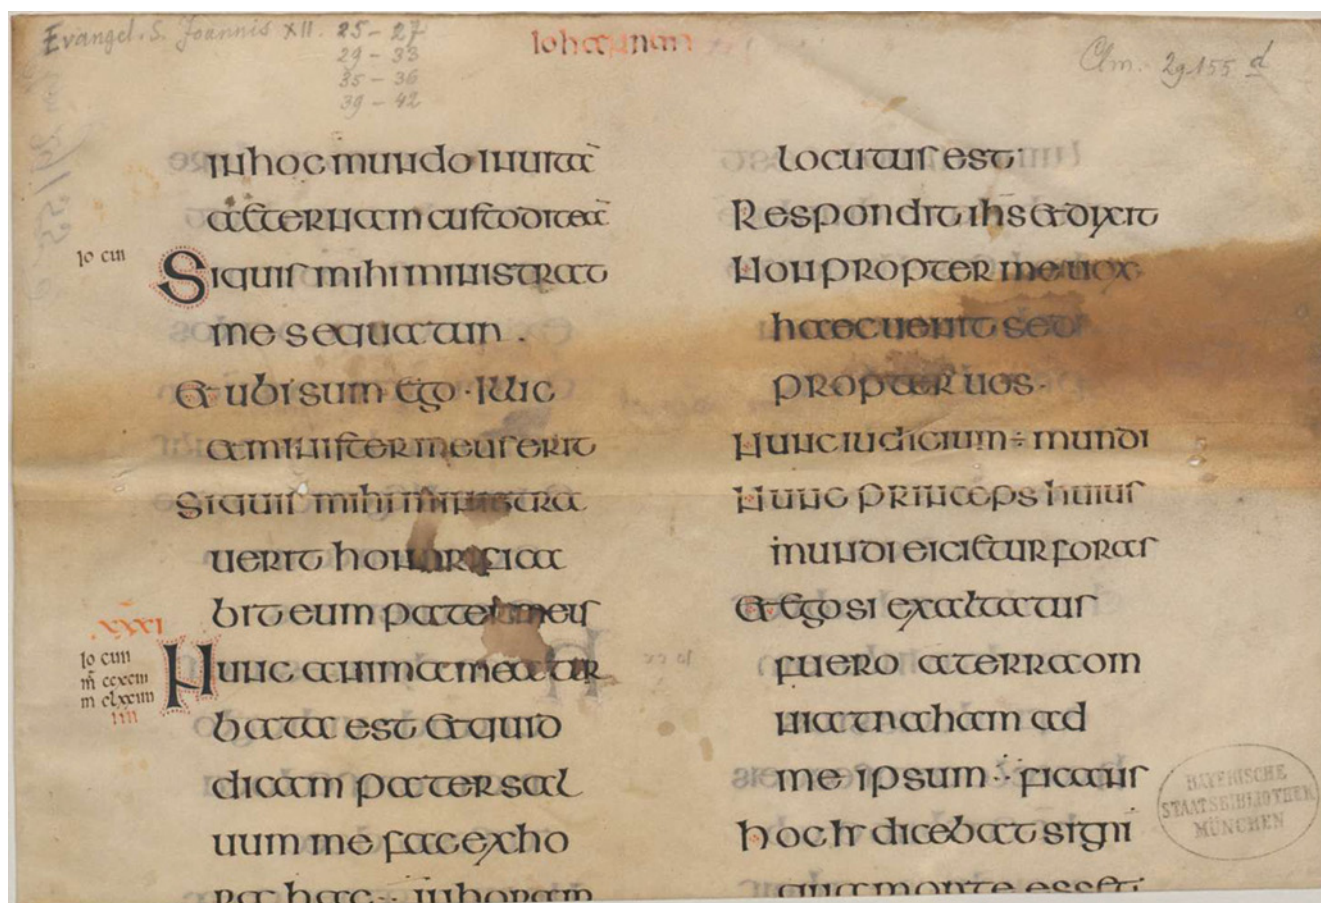 Evangel. S. Joannis XII. 25-27
29-33
35-36
39-42
Clm. 29155 d
Iohannan
in hoc mundo in uita͞
aeternam custodit ea͞
Io cııı
Siquis mihi ministrat
me sequatur.
Et ubi sum ego · illic
a minister meus erit
Siquis mihi ministra
uerit honorifica
bit eum pater meus
XXXI
Io cuıı
m̅ ccxcııı
ıııı
Nunc anima mea tur
bata est et quid
dicam pater sal
uum me fac ex ho
ra hac · in horam
locutus est·
Respondit ih̅s et dixit
Non propter me uox
haec uenit sed
propter uos·
Nunc iudicium ÷ mundi
Nunc princeps huius
mundi eicietur foras
Et ego si exaltatus
fuero a terra om
nia traham ad
me ipsum
ficans
hoc h dicebat signi
qua morte esset
BAYERISCHE
STAATSBIBLIOTHEK
MÜNCHEN